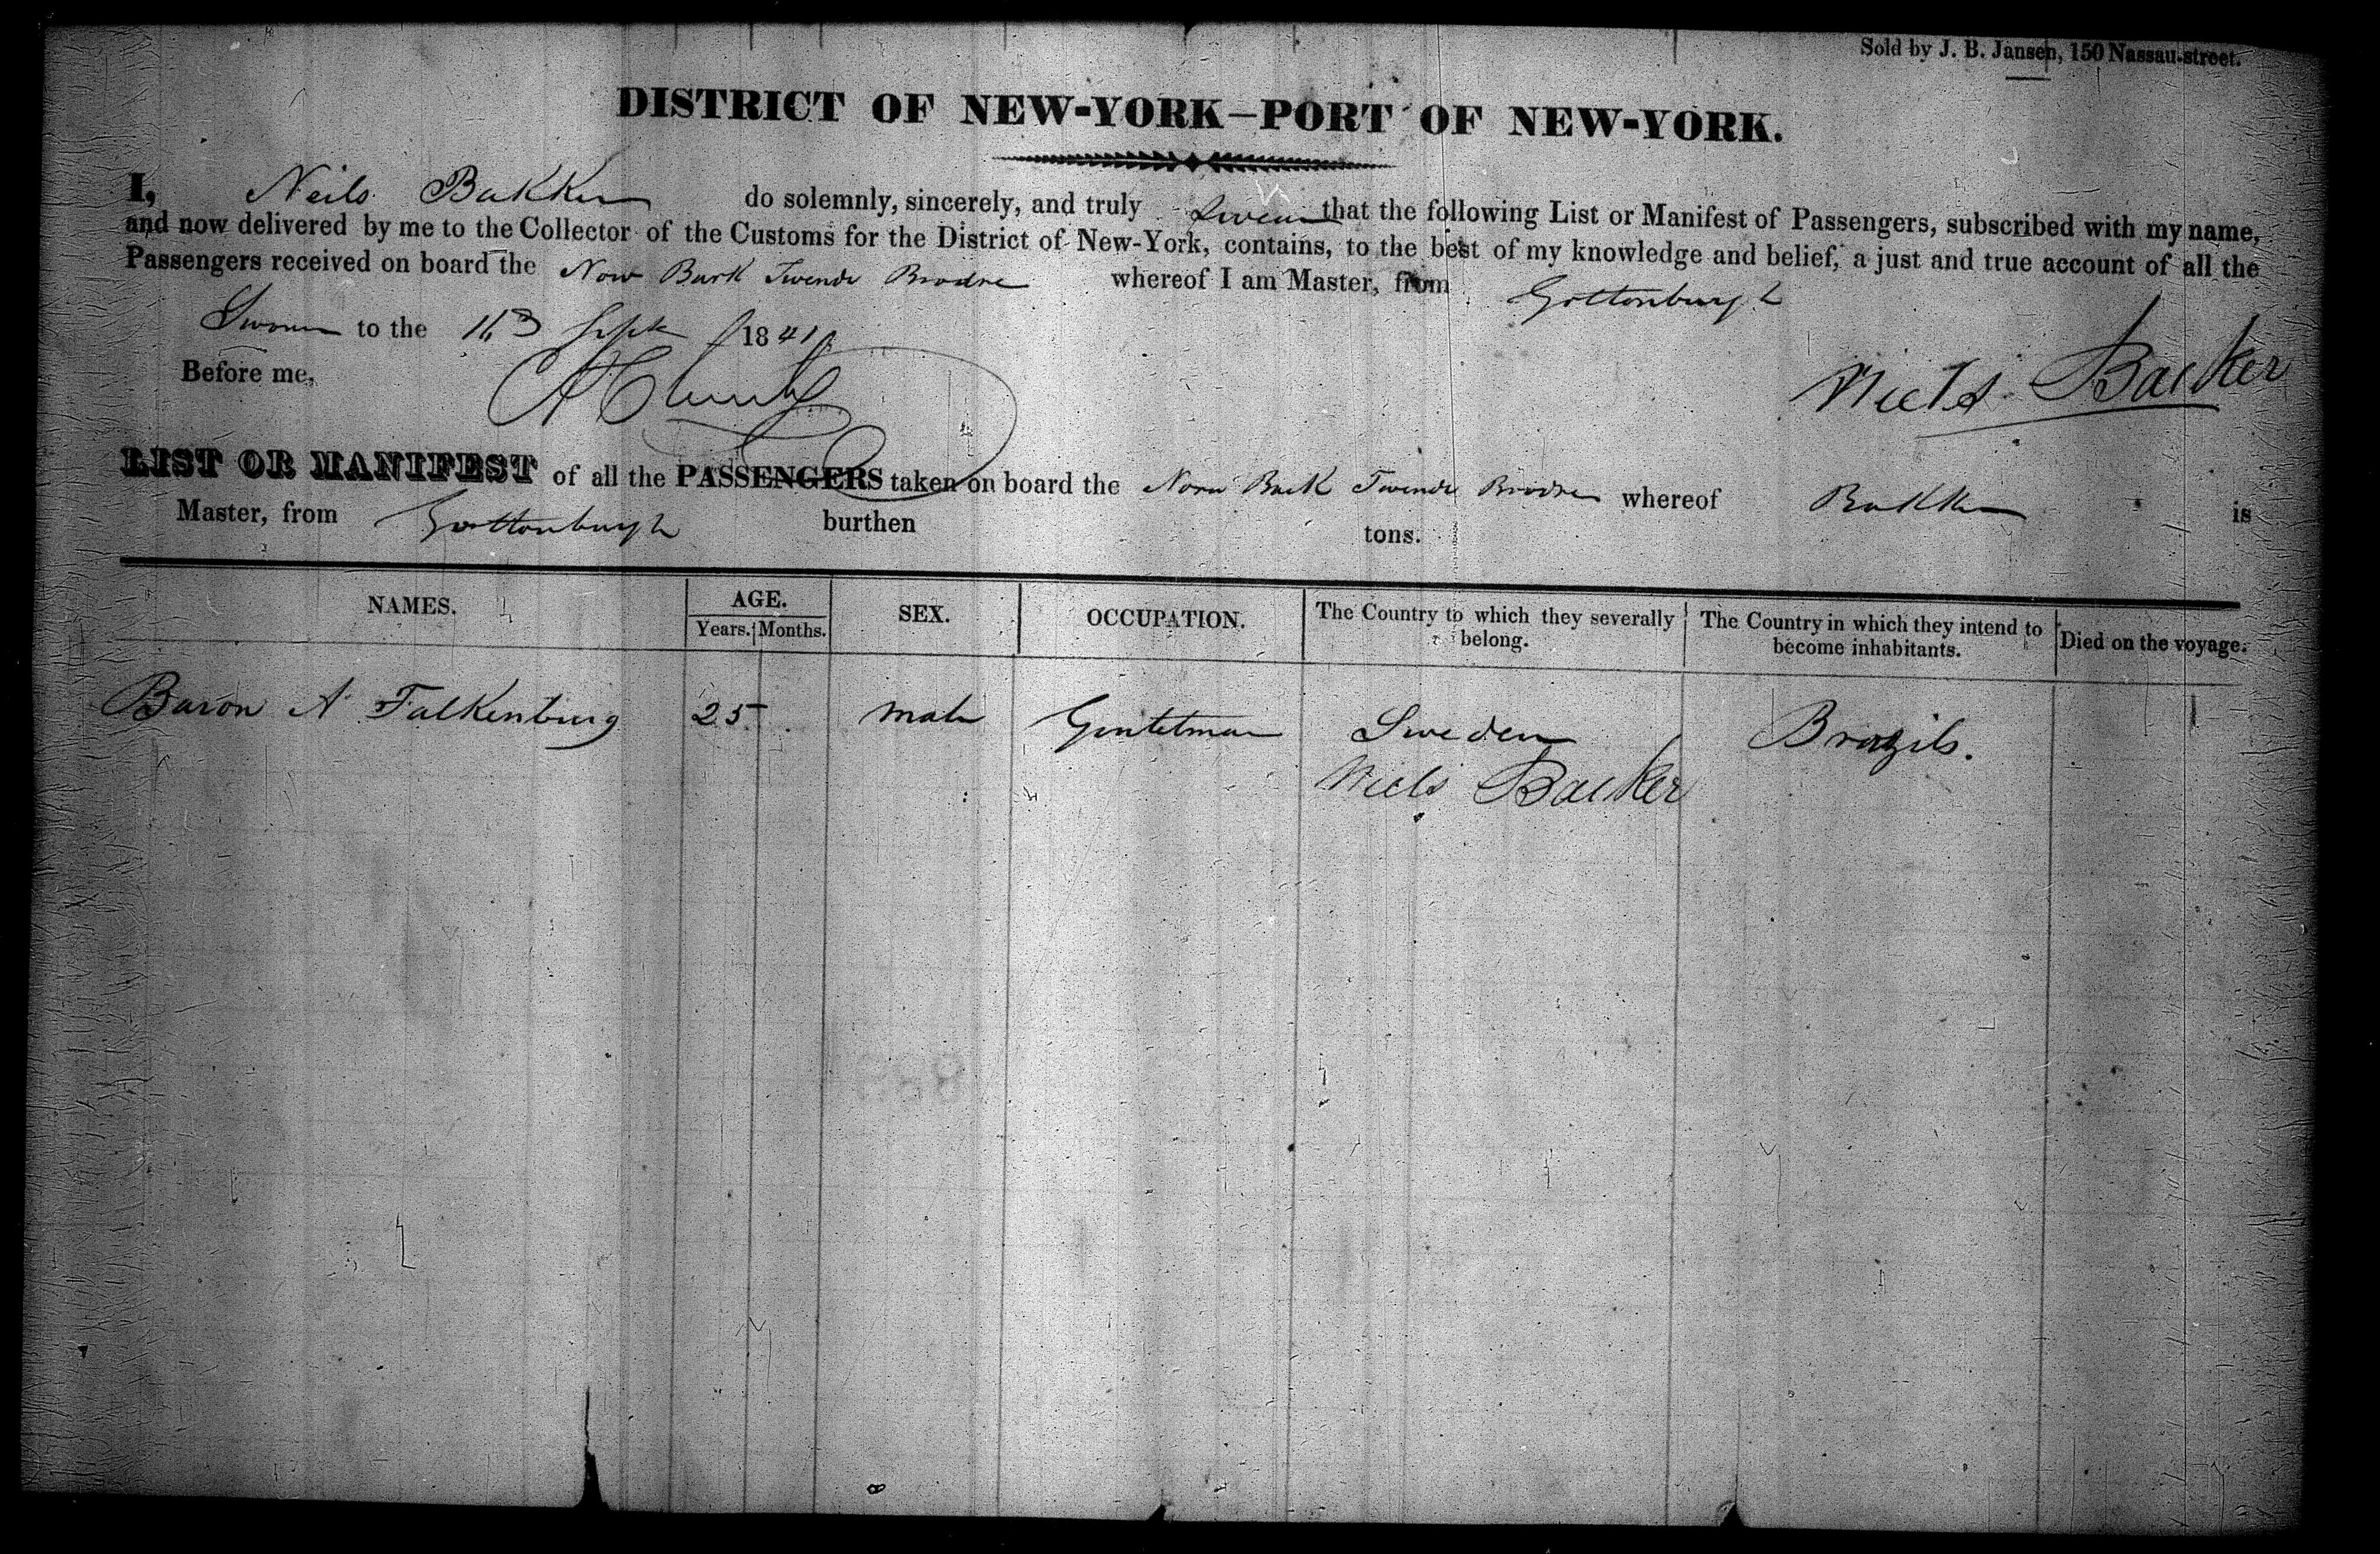 Sold by J. B. Jansen, 150 Nassau-street.
DISTRICT OF NEW-YORK—PORT OF NEW-YORK.
I, Neils Bakker do solemnly, sincerely, and truly swear that the following List or Manifest of Passengers, subscribed with my name,
and now delivered by me to the Collector of the Customs for the District of New-York, contains, to the best of my knowledge and belief, a just and true account of all the
Passengers received on board the Now Bark Twende Brodre whereof I am Master, from Gottenburgh
Sworn to the Sept 1841
Before me,
Niels Backer
LIST OR MANIFEST of all the PASSENGERS taken on board the Norw Bark Twende Brodre whereof Bakker is
Master, from Gottenburgh burthen tons.
NAMES. AGE. SEX. OCCUPATION. The Country to which they severally belong. The Country in which they intend to become inhabitants. Died on the voyage.
Years. Months.
Baron A Falkenburg 25 male Gentelman Sweden Brazils.
Niels Backer